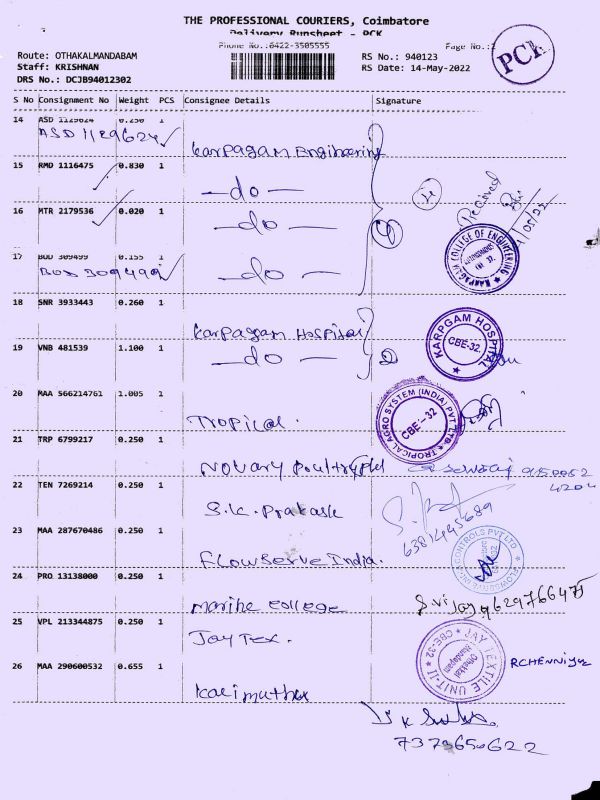 THE PROFESSIONAL COURIERS, Coimbatore
Delivery Runsheet - PCK
Phone No.:0422-3505555
Page No.:2
PCK
Route: OTHAKALMANDABAM
RS No.: 940123
Staff: KRISHNAN
RS Date: 14-May-2022
DRS No.: DCJB94012302
S No Consignment No Weight PCS Consignee Details Signature
14 ASD 1129624 0.250 1
ASD 1129624 Karpagam Engineering
15 RMD 1116475 0.830 1
—do—
Received
16 MTR 2179536 0.020 1
—do— 4
KARPAGAM COLLEGE OF ENGINEERING
AUTONOMOUS
CBE 32.
17 BOD 309499 0.155 1
BOD 309499 —do—
18 SNR 3933443 0.260 1
Karpagam Hospital
KARPGAM HOSPITAL
CBE-32.
19 VNB 481539 1.100 1
—do— 2
20 MAA 566214761 1.005 1
Tropical.
TROPICAL AGRO SYSTEM (INDIA) PVT LTD.
CBE-32
21 TRP 6799217 0.250 1
22 TEN 7269214 0.250 1
S.K. Prakash
6381495689
23 MAA 287670486 0.250 1
Flowserve India.
CONTROLS PVT LTD
24 PRO 13138000 0.250 1
Marine college
Srijay 9629766475
25 VPL 213344875 0.250 1
Jay Tex.
JAY TEXTILE UNIT-II
CBE-32
26 MAA 290600532 0.655 1
Karimuthu
7373650622